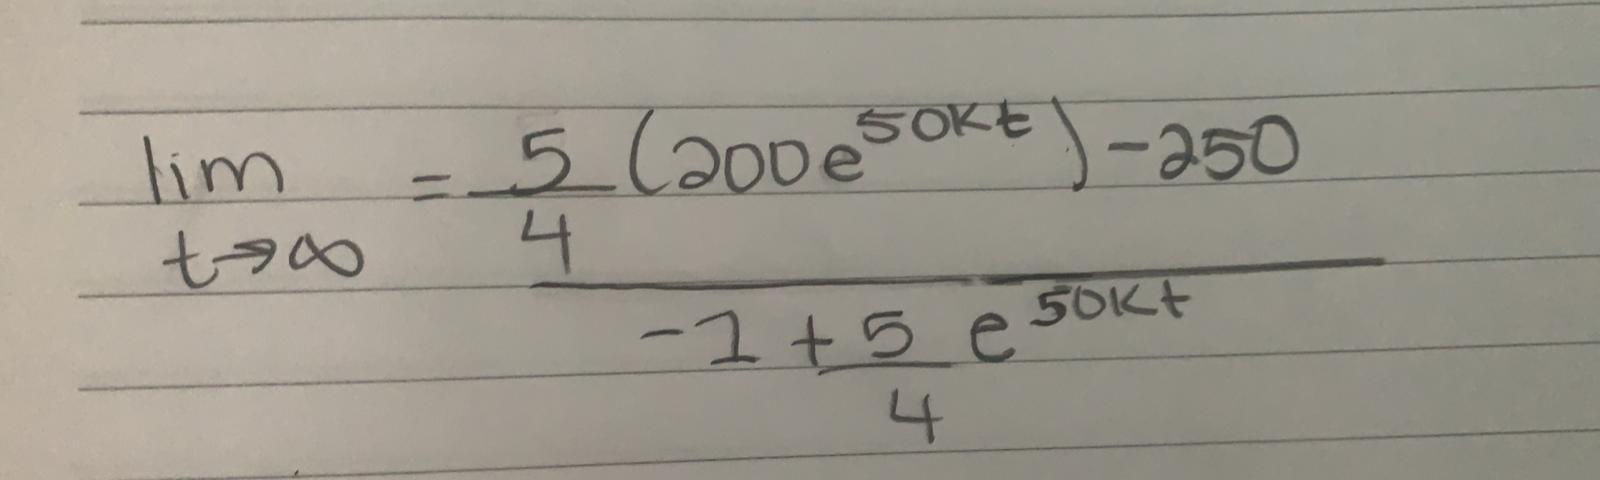 lim = 5/4 (200e^50Kt) - 250
t→∞
-1 + 5/4 e^50Kt